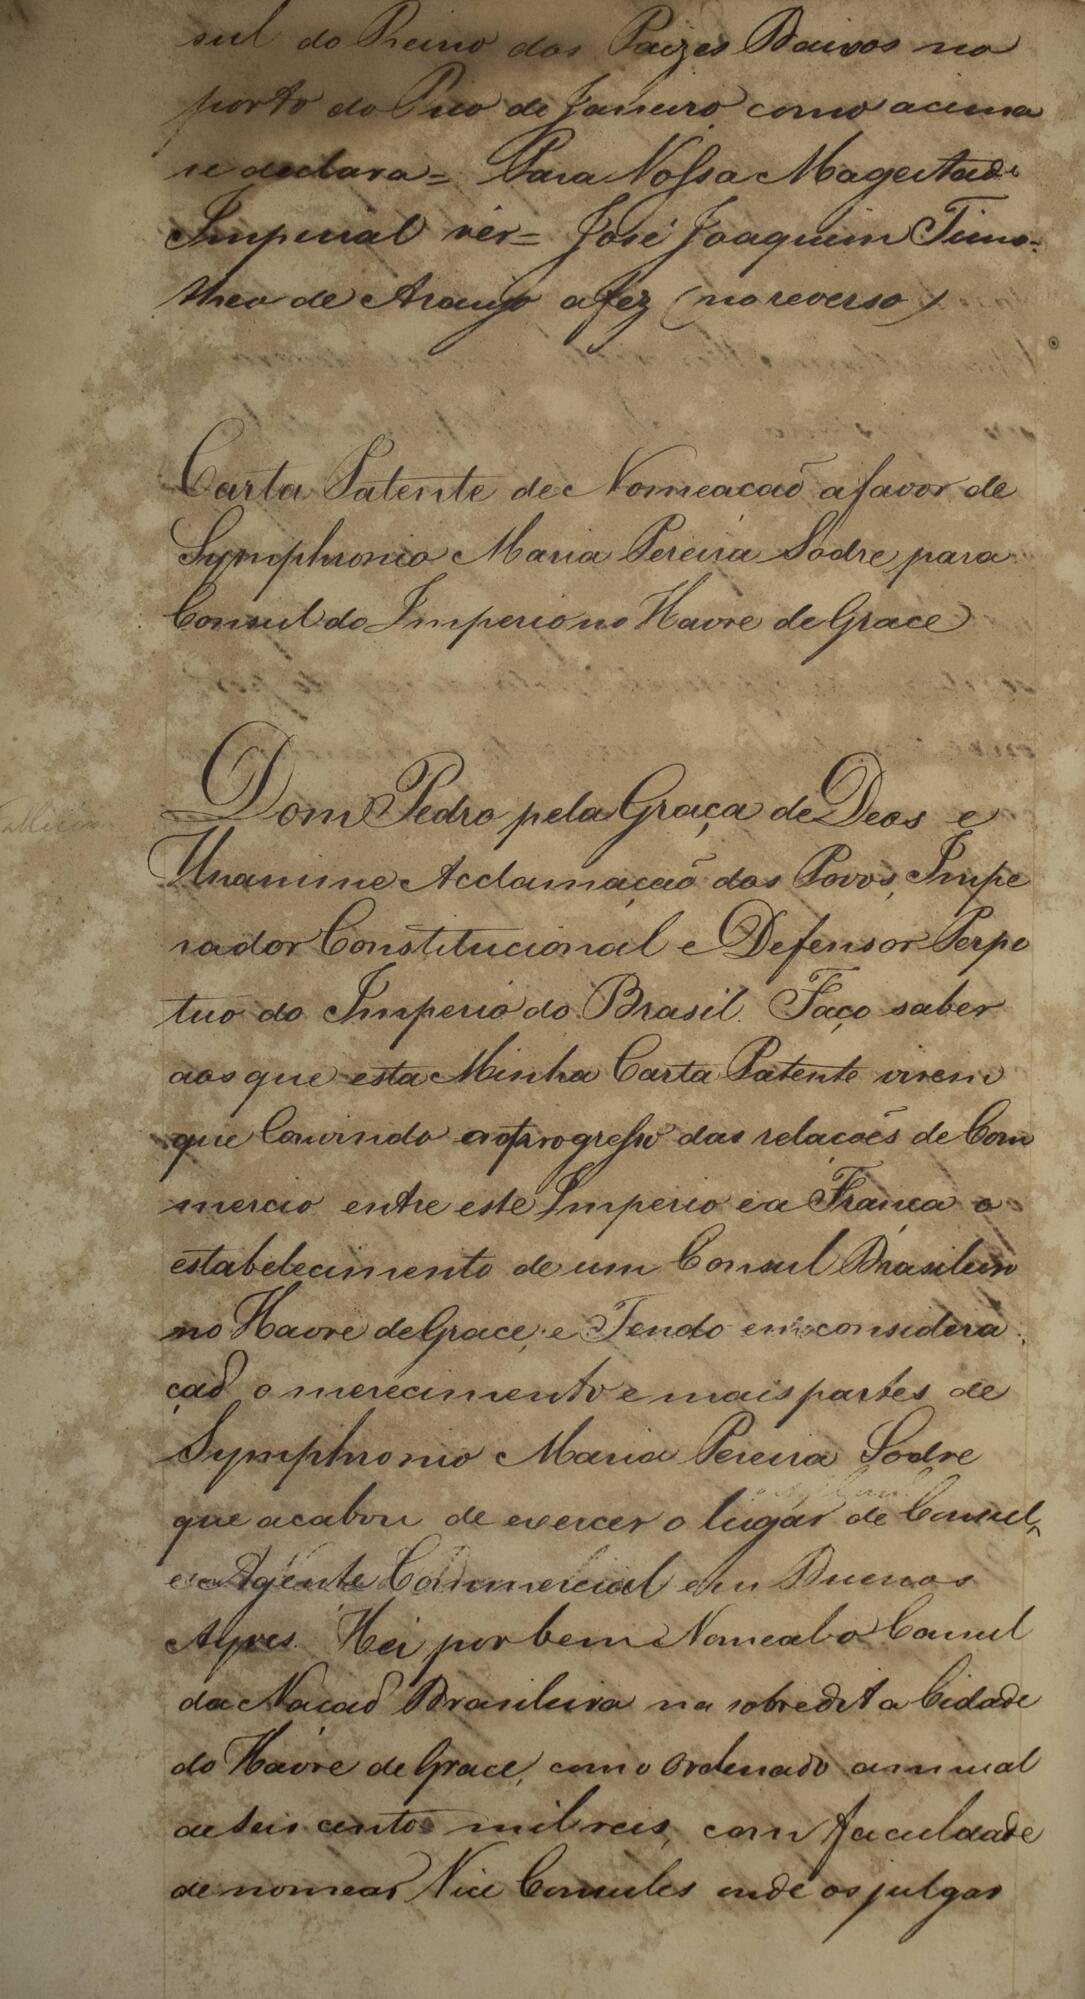 sul do Reino dos Paizes Baixos no
porto do Rio de Janeiro como acima
se declara = Para Vossa Magestade
Imperial vêr = José Joaquim Timo-
theo de Araujo a fez (no reverso)
Carta Patente de Nomeacaõ a favor de
Symphronio Maria Pereira Sodre para
Consul do Imperio no Havre de Grace
Dom Pedro pela Graça de Deos e
Unanime Acclamaçaõ dos Povos, Impe
rador Constitucional e Defensor Perpe
tuo do Imperio do Brasil. Faço saber
aos que esta Minha Carta Patente virem
que Convindo ao progresso das relacoẽs de Com
mercio entre este Imperio e a Franca o
estabelecimento de um Consul Brasileiro
no Havre de Grace, e Tendo em considera
çaõ o merecimento e mais partes de
Symphronio Maria Pereira Sodre
que acabou de exercer o lugar de Consul,
e Agente Commercial em Buenos
Ayres. Hei por bem Nomealo Consul
da Nacaõ Brasileira na sobredita Cidade
do Havre de Grace, com o Ordenado annual
de seis centos mil reis, com faculdade
de nomear Vice Consules onde os julgar